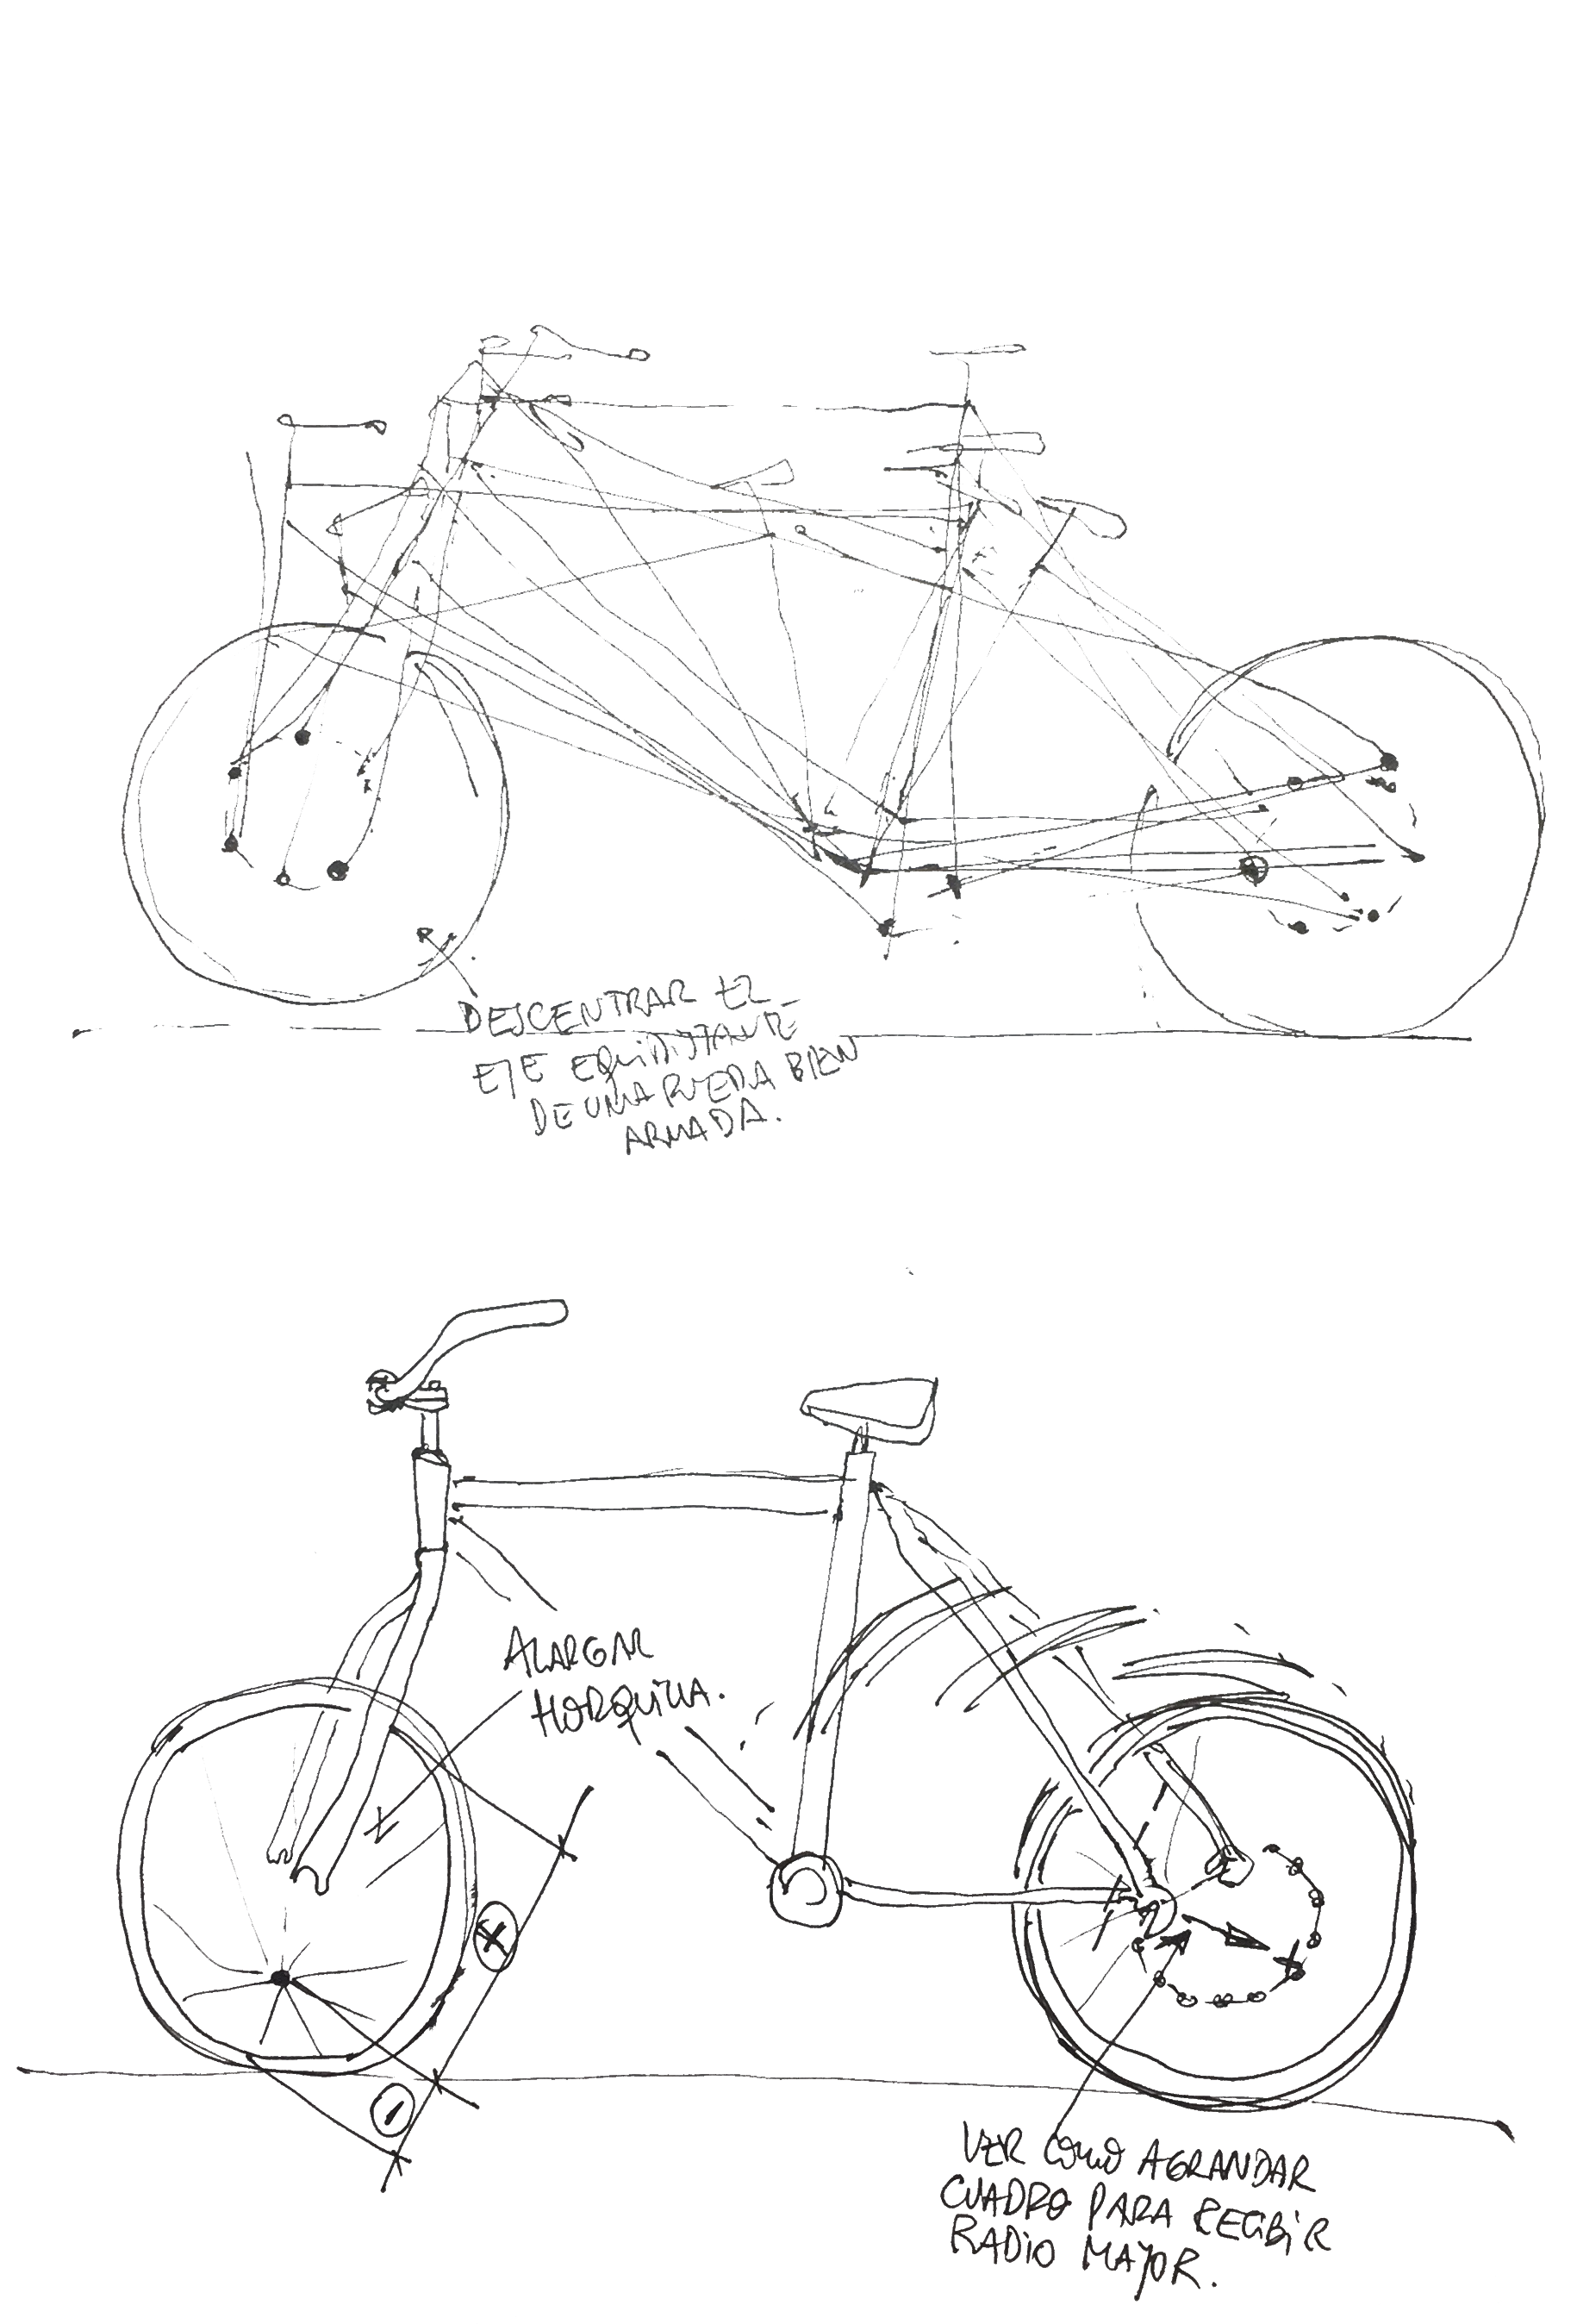 DESCENTRAR EL
EJE EQUIDISTANTE
DE UNA RUEDA BIEN
ARMADA.
ALARGAR
HORQUILLA.
X
1
VER COMO AGRANDAR
CUADRO PARA RECIBIR
RADIO MAYOR.